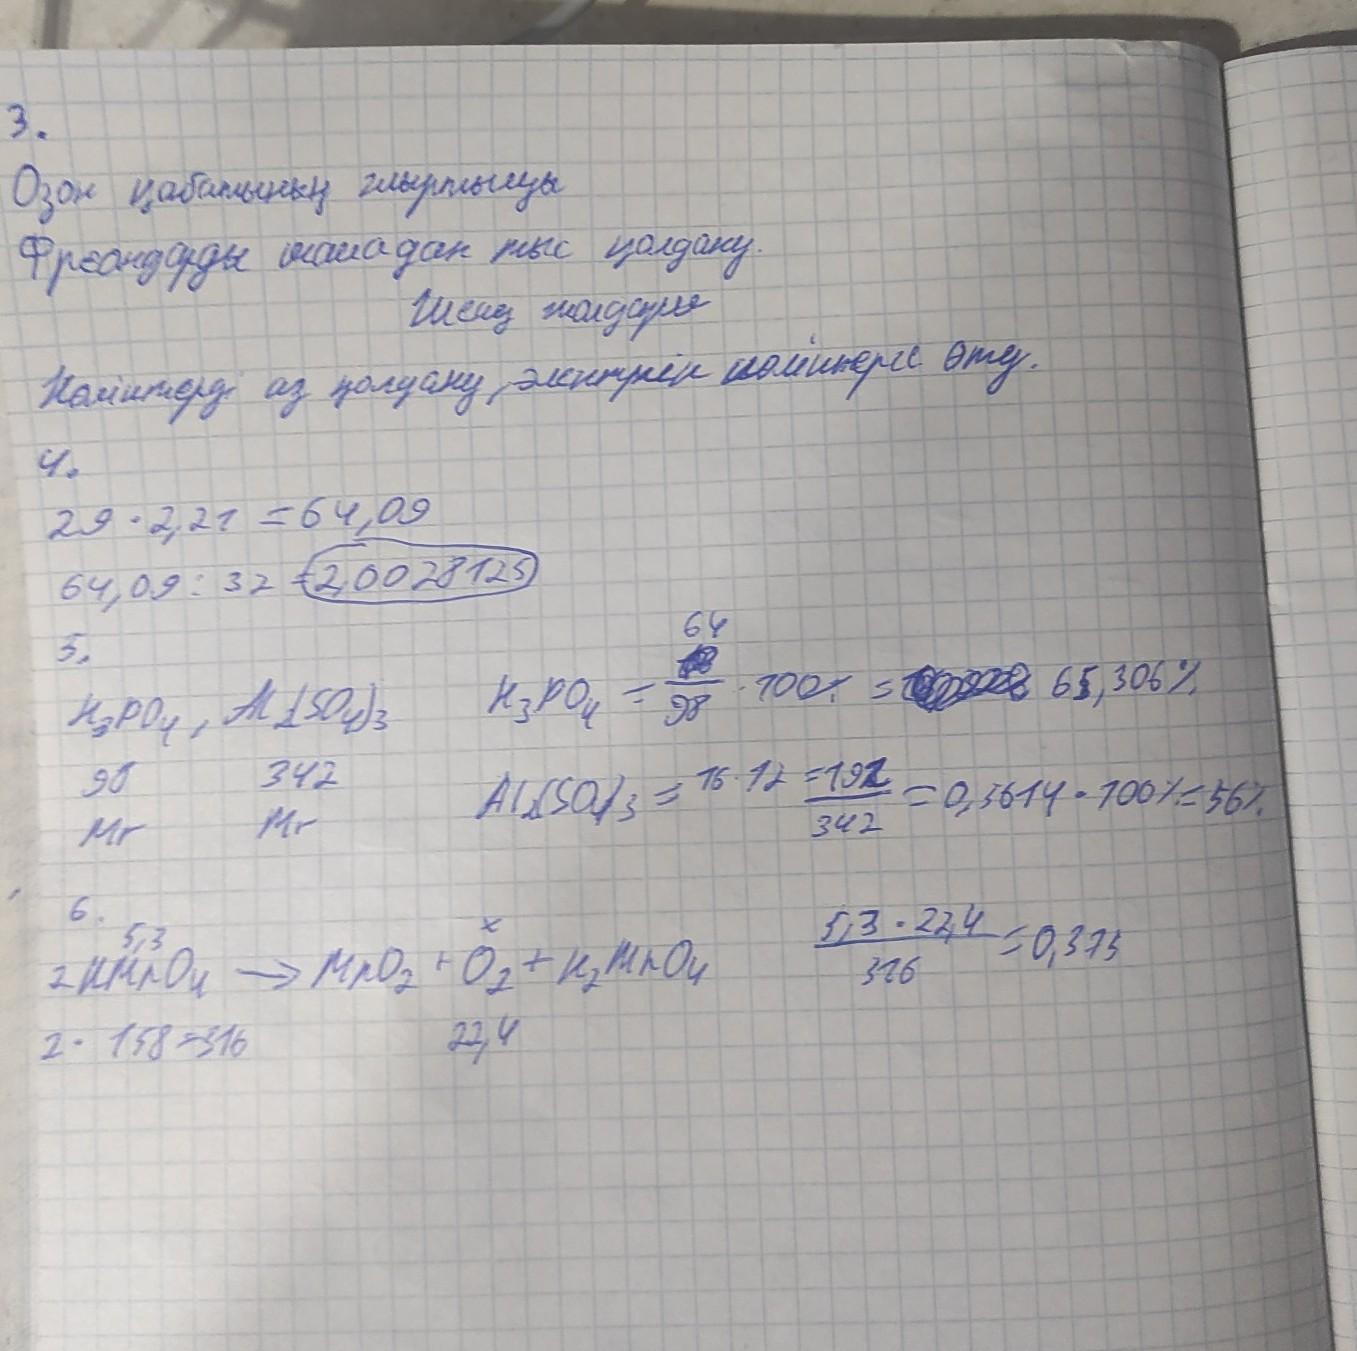 3.
Озон қабатының жыртылуы
Фреондарды шамадан тыс қолдану.
Шешу жолдары
Көліктерді аз қолдану, электрлік көліктерге өту.
4.
29 · 2,21 = 64,09
64,09 : 32 = 2,0028125
5.
H₃PO₄, Al₂(SO₄)₃
98 342
Mr Mr
H₃PO₄ = 64/98 · 100% = 65,306%
Al₂(SO₄)₃ = 16 · 12 = 192/342 = 0,5614 · 100% = 56%
6.
5,3 x
2KMnO₄ → MnO₂ + O₂ + K₂MnO₄
2 · 158 = 316 22,4
5,3 · 22,4/316 = 0,375